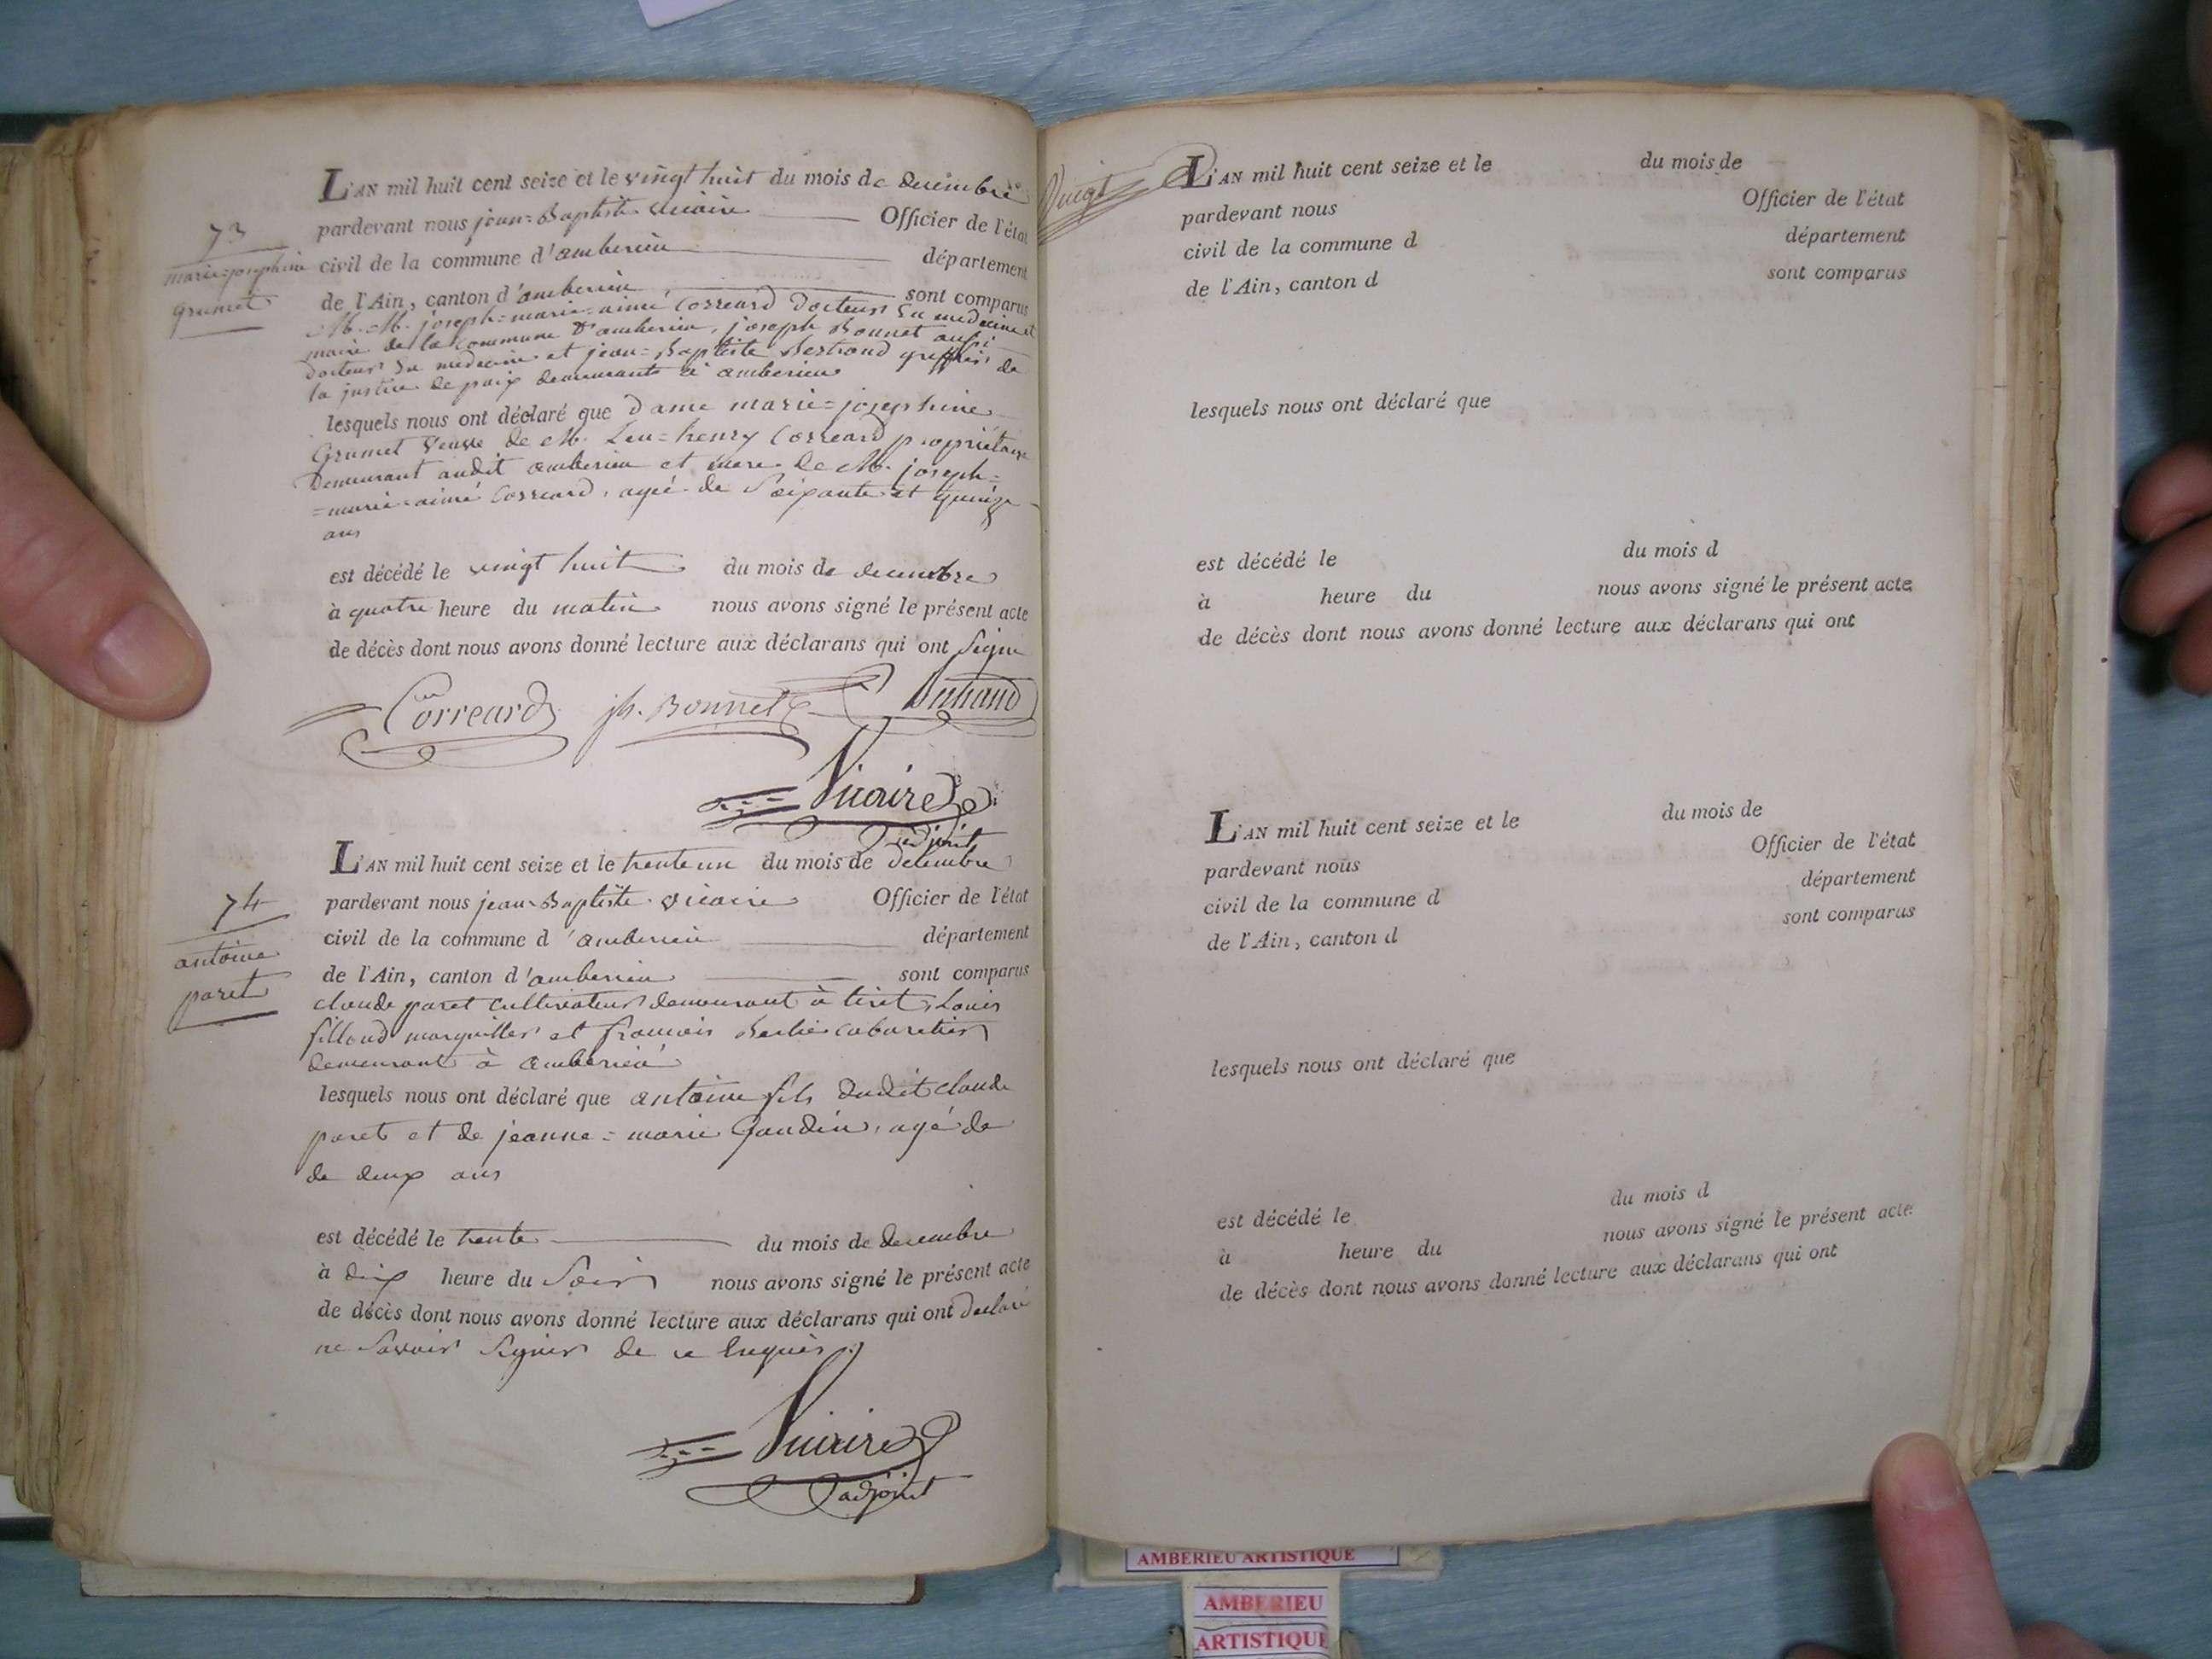 L'AN mil huit cent seize et le vingt huit du mois de decembre
pardevant nous jean=Baptiste vicaire Officier de l'état
civil de la commune d'amberieu département
de l'Ain, canton d'amberieu sont comparus
73
marie=josephine
grumet
M. M. joseph=marie=aimé Correard Docteur En medecine et
maire de la Commune D'amberieu, joseph Bonnet aussi
docteur En medecine et jean=Baptiste Bertrand greffier de
la justice de paix demeurants à amberieu
lesquels nous ont déclaré que Dame marie=josephine
Grumet veuve de M. Leu=henry Correard propriétaire
Demeurant audit amberieu et mere de M. joseph=
=marie=aimé Correard, agée de Soixante et quinze
ans
est décédé le vingt huit du mois de decembre
à quatre heure du matin nous avons signé le présent acte
de décès dont nous avons donné lecture aux déclarans qui ont Signé
Correard jh. Bonnet Bertrand
Vicaire
adjoint
L'AN mil huit cent seize et le trente un du mois de decembre
pardevant nous jean=Baptiste vicaire Officier de l'état
civil de la commune d'amberieu département
de l'Ain, canton d'amberieu sont comparus
74
antoine
paret
claude paret cultivateur demeurant à tiret, Louis
fillaud marguiller et francois Barbier cabaretier
demeurant à amberieu
lesquels nous ont déclaré que antoine fils dudit claude
paret et de jeanne=marie Gaudin, agé de
de deux ans
est décédé le trente du mois de decembre
à dix heure du Soir nous avons signé le présent acte
de décès dont nous avons donné lecture aux déclarans qui ont declaré
ne Savoir Signer de ce Enquis
Vicaire
adjoint
Vingt
L'AN mil huit cent seize et le du mois de
pardevant nous Officier de l'état
civil de la commune d département
de l'Ain, canton d sont comparus
lesquels nous ont déclaré que
est décédé le du mois d
à heure du nous avons signé le présent acte
de décès dont nous avons donné lecture aux déclarans qui ont
L'AN mil huit cent seize et le du mois de
pardevant nous Officier de l'état
civil de la commune d département
de l'Ain, canton d sont comparus
lesquels nous ont déclaré que
est décédé le du mois d
à heure du nous avons signé le présent acte
de décès dont nous avons donné lecture aux déclarans qui ont
AMBERIEU ARTISTIQUE
AMBERIEU
ARTISTIQUE